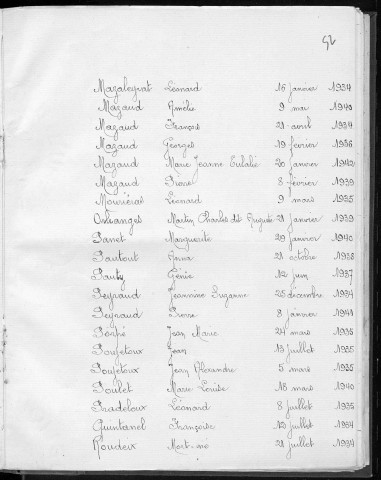 52
Mazaleyrat Léonard 15 janvier 1934
Mazaud Amélie 9 mai 1940
Mazaud François 21 avril 1934
Mazaud Georges 19 février 1936
Mazaud Marie Jeanne Eulalie 20 janvier 1942
Mazaud Pierre 8 février 1939
Mouriéras Léonard 9 mars 1935
Orlianges Martin Charles dit Auguste 21 janvier 1939
Panet Marguerite 29 janvier 1940
Pautout Anna 21 octobre 1938
Pauty Génie 12 juin 1937
Peyraud Jeannine Suzanne 25 décembre 1934
Peyraud Pierre 8 janvier 1941
Jean Marie 24 mars 1936
Poujetoux Jean 13 juillet 1935
Poujetoux Jean Alexandre 5 mars 1935
Poulet Marie Louise 18 mars 1940
Pradeloux Léonard 8 juillet 1935
Quintanel Françoise 12 juillet 1934
Roudeix Mort-né 21 juillet 1934